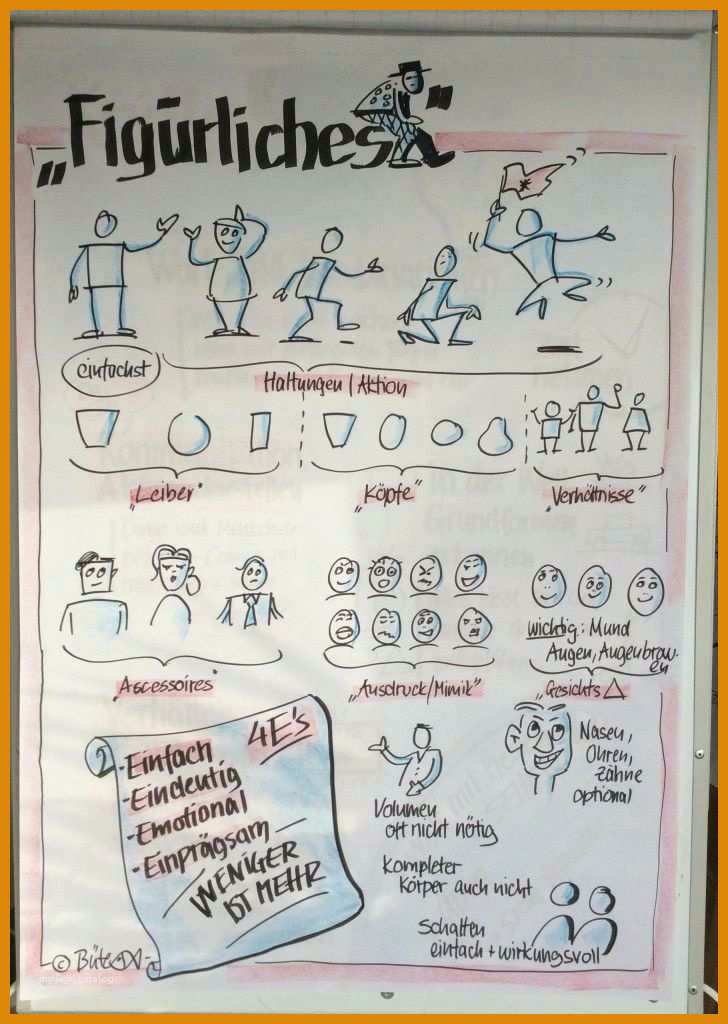 „Figürliches"
einfachst
Haltungen | Aktion
„Leiber"
„Köpfe"
„Verhältnisse"
„Accessoires"
„Ausdruck/Mimik"
wichtig: Mund
Augen, Augenbrau-
en
„Gesichts△
4E's
- Einfach
- Eindeutig
- Emotional
- Einprägsam
WENIGER
IST MEHR
Nasen,
Ohren,
Zähne
optional
Volumen
oft nicht nötig
kompletter
Körper auch nicht
Schatten
einfach + wirkungsvoll